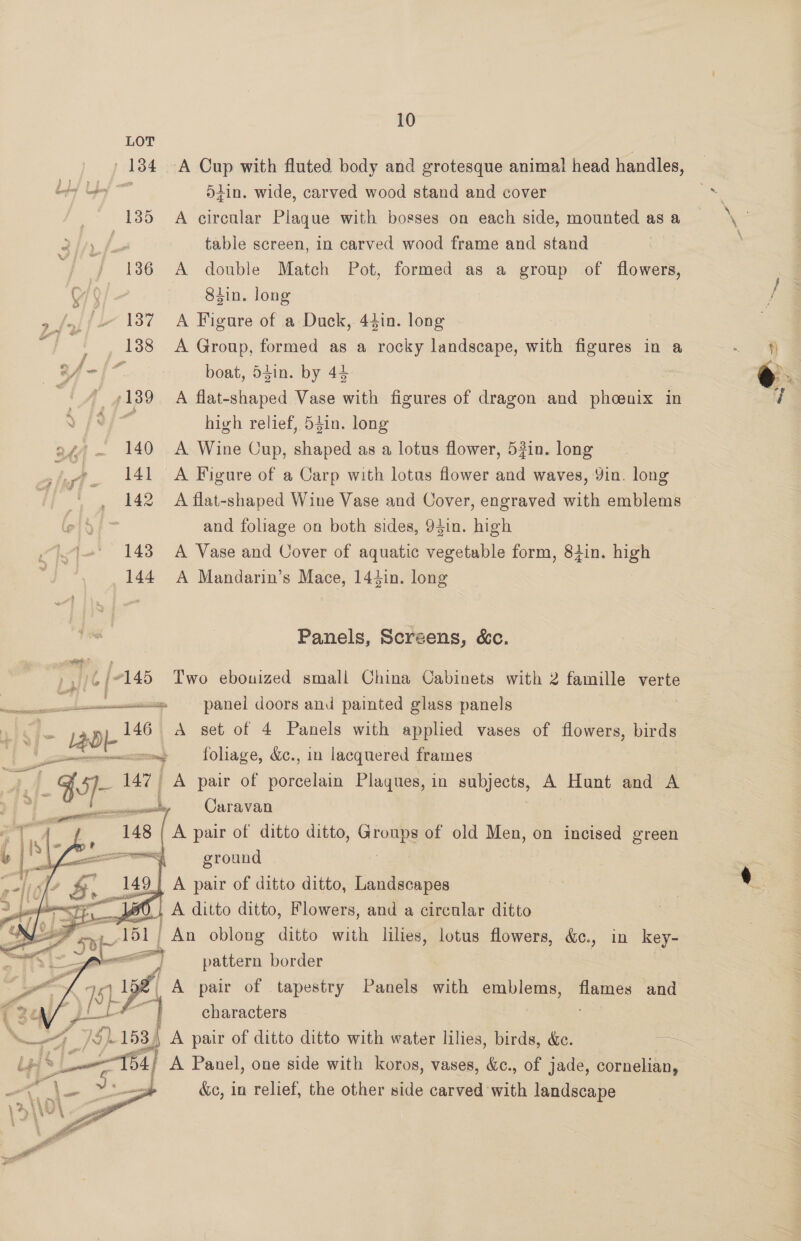 10
LOT
134 A Cup with fluted body and grotesque animal head handles,
5½in. wide, carved wood stand and cover
135 A circular Plaque with bosses on each side, mounted as a
table screen, in carved wood frame and stand
136 A double Match Pot, formed as a group of flowers,
8½in. long
137 A Figure of a Duck, 4½in. long
138 A Group, formed as a rocky landscape, with figures in a
boat, 5½in. by 4½
139 A flat-shaped Vase with figures of dragon and phœnix in
high relief, 5½in. long
140 A Wine Cup, shaped as a lotus flower, 5¾in. long
141 A Figure of a Carp with lotus flower and waves, 9in. long
142 A flat-shaped Wine Vase and Cover, engraved with emblems
and foliage on both sides, 9½in. high
143 A Vase and Cover of aquatic vegetable form, 8½in. high
144 A Mandarin's Mace, 14½in. long
Panels, Screens, &c.
145 Two ebonized small China Cabinets with 2 famille verte
panel doors and painted glass panels
146 A set of 4 Panels with applied vases of flowers, birds
foliage, &c., in lacquered frames
147 A pair of porcelain Plaques, in subjects, A Hunt and A
Caravan
148 A pair of ditto ditto, Groups of old Men, on incised green
ground
149 A pair of ditto ditto, Landscapes
150 A ditto ditto, Flowers, and a circular ditto
151 An oblong ditto with lilies, lotus flowers, &c., in key-
pattern border
152 A pair of tapestry Panels with emblems, flames and
characters
153 A pair of ditto ditto with water lilies, birds, &c.
154 A Panel, one side with koros, vases, &c., of jade, cornelian,
&c, in relief, the other side carved with landscape